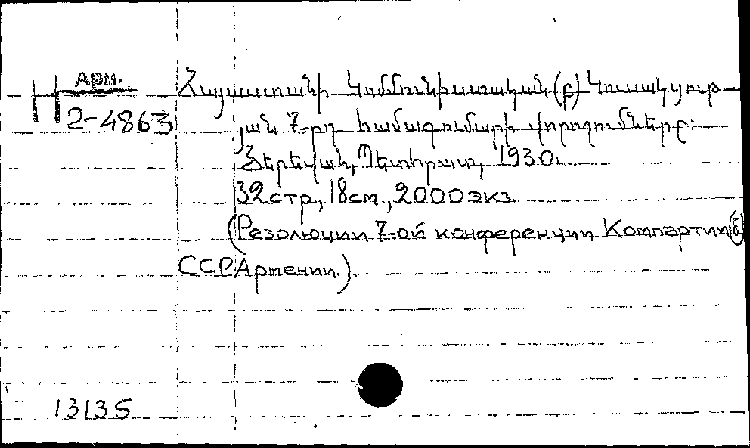 Арм.
Н
2-4863
Հայաստանի Կոմմունիստական (բ) Կուսակցութ
յան 7-րդ համագումարի վորոշումները:
Յերեվան, Պետհրատ, 1930.
32 стр, 18 см., 2000 экз
(Резолюции 7-ой конференции Компартии (б)
ССР Армении.)
13135